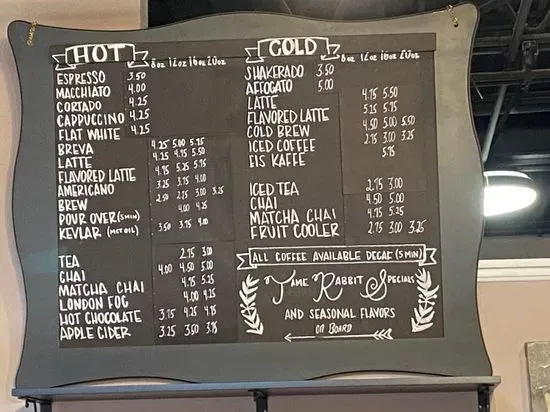 HOT
8oz 12oz 16oz 20oz
ESPRESSO 3.50
MACCHIATO 4.00
CORTADO 4.25
CAPPUCCINO 4.25
FLAT WHITE 4.25
BREVA 4.25 5.00 5.75
LATTE 4.25 4.75 5.50
FLAVORED LATTE 4.75 5.25 5.75
AMERICANO 3.25 3.75 4.00
BREW 2.50 2.75 3.00 3.25
POUR OVER (5 MIN) 4.00 4.25
KEVLAR (MCT OIL) 3.50 3.75 4.00
TEA 2.75 3.00
CHAI 4.00 4.50 5.00
MATCHA CHAI 4.75 5.25
LONDON FOG 4.00 4.25
HOT CHOCOLATE 3.75 4.25 4.75
APPLE CIDER 3.25 3.50 3.75
COLD
8oz 12oz 16oz 20oz
SHAKERADO 3.50
AFFOGATO 5.00
LATTE 4.75 5.50
FLAVORED LATTE 5.25 5.75
COLD BREW 4.50 5.00 5.50
ICED COFFEE 2.75 3.00 3.25
EIS KAFFE 5.75
ICED TEA 2.75 3.00
CHAI 4.50 5.00
MATCHA CHAI 4.75 5.25
FRUIT COOLER 2.75 3.00 3.25
ALL COFFEE AVAILABLE DECAF (5 MIN)
TAME RABBIT SPECIALS
AND SEASONAL FLAVORS
ON BOARD